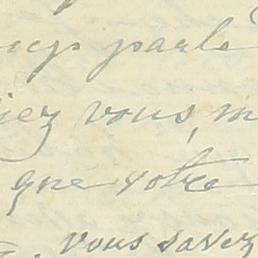 parlé
iez vous, m
que votre
vous savez